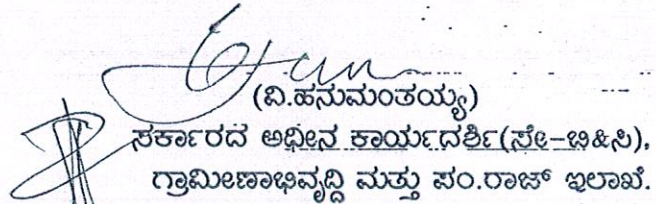 (ವಿ.ಹನುಮಂತಯ್ಯ)
ಸರ್ಕಾರದ ಅಧೀನ ಕಾರ್ಯದರ್ಶಿ(ಸೇ-ಬಿ&ಸಿ),
ಗ್ರಾಮೀಣಾಭಿವೃದ್ಧಿ ಮತ್ತು ಪಂ.ರಾಜ್ ಇಲಾಖೆ.